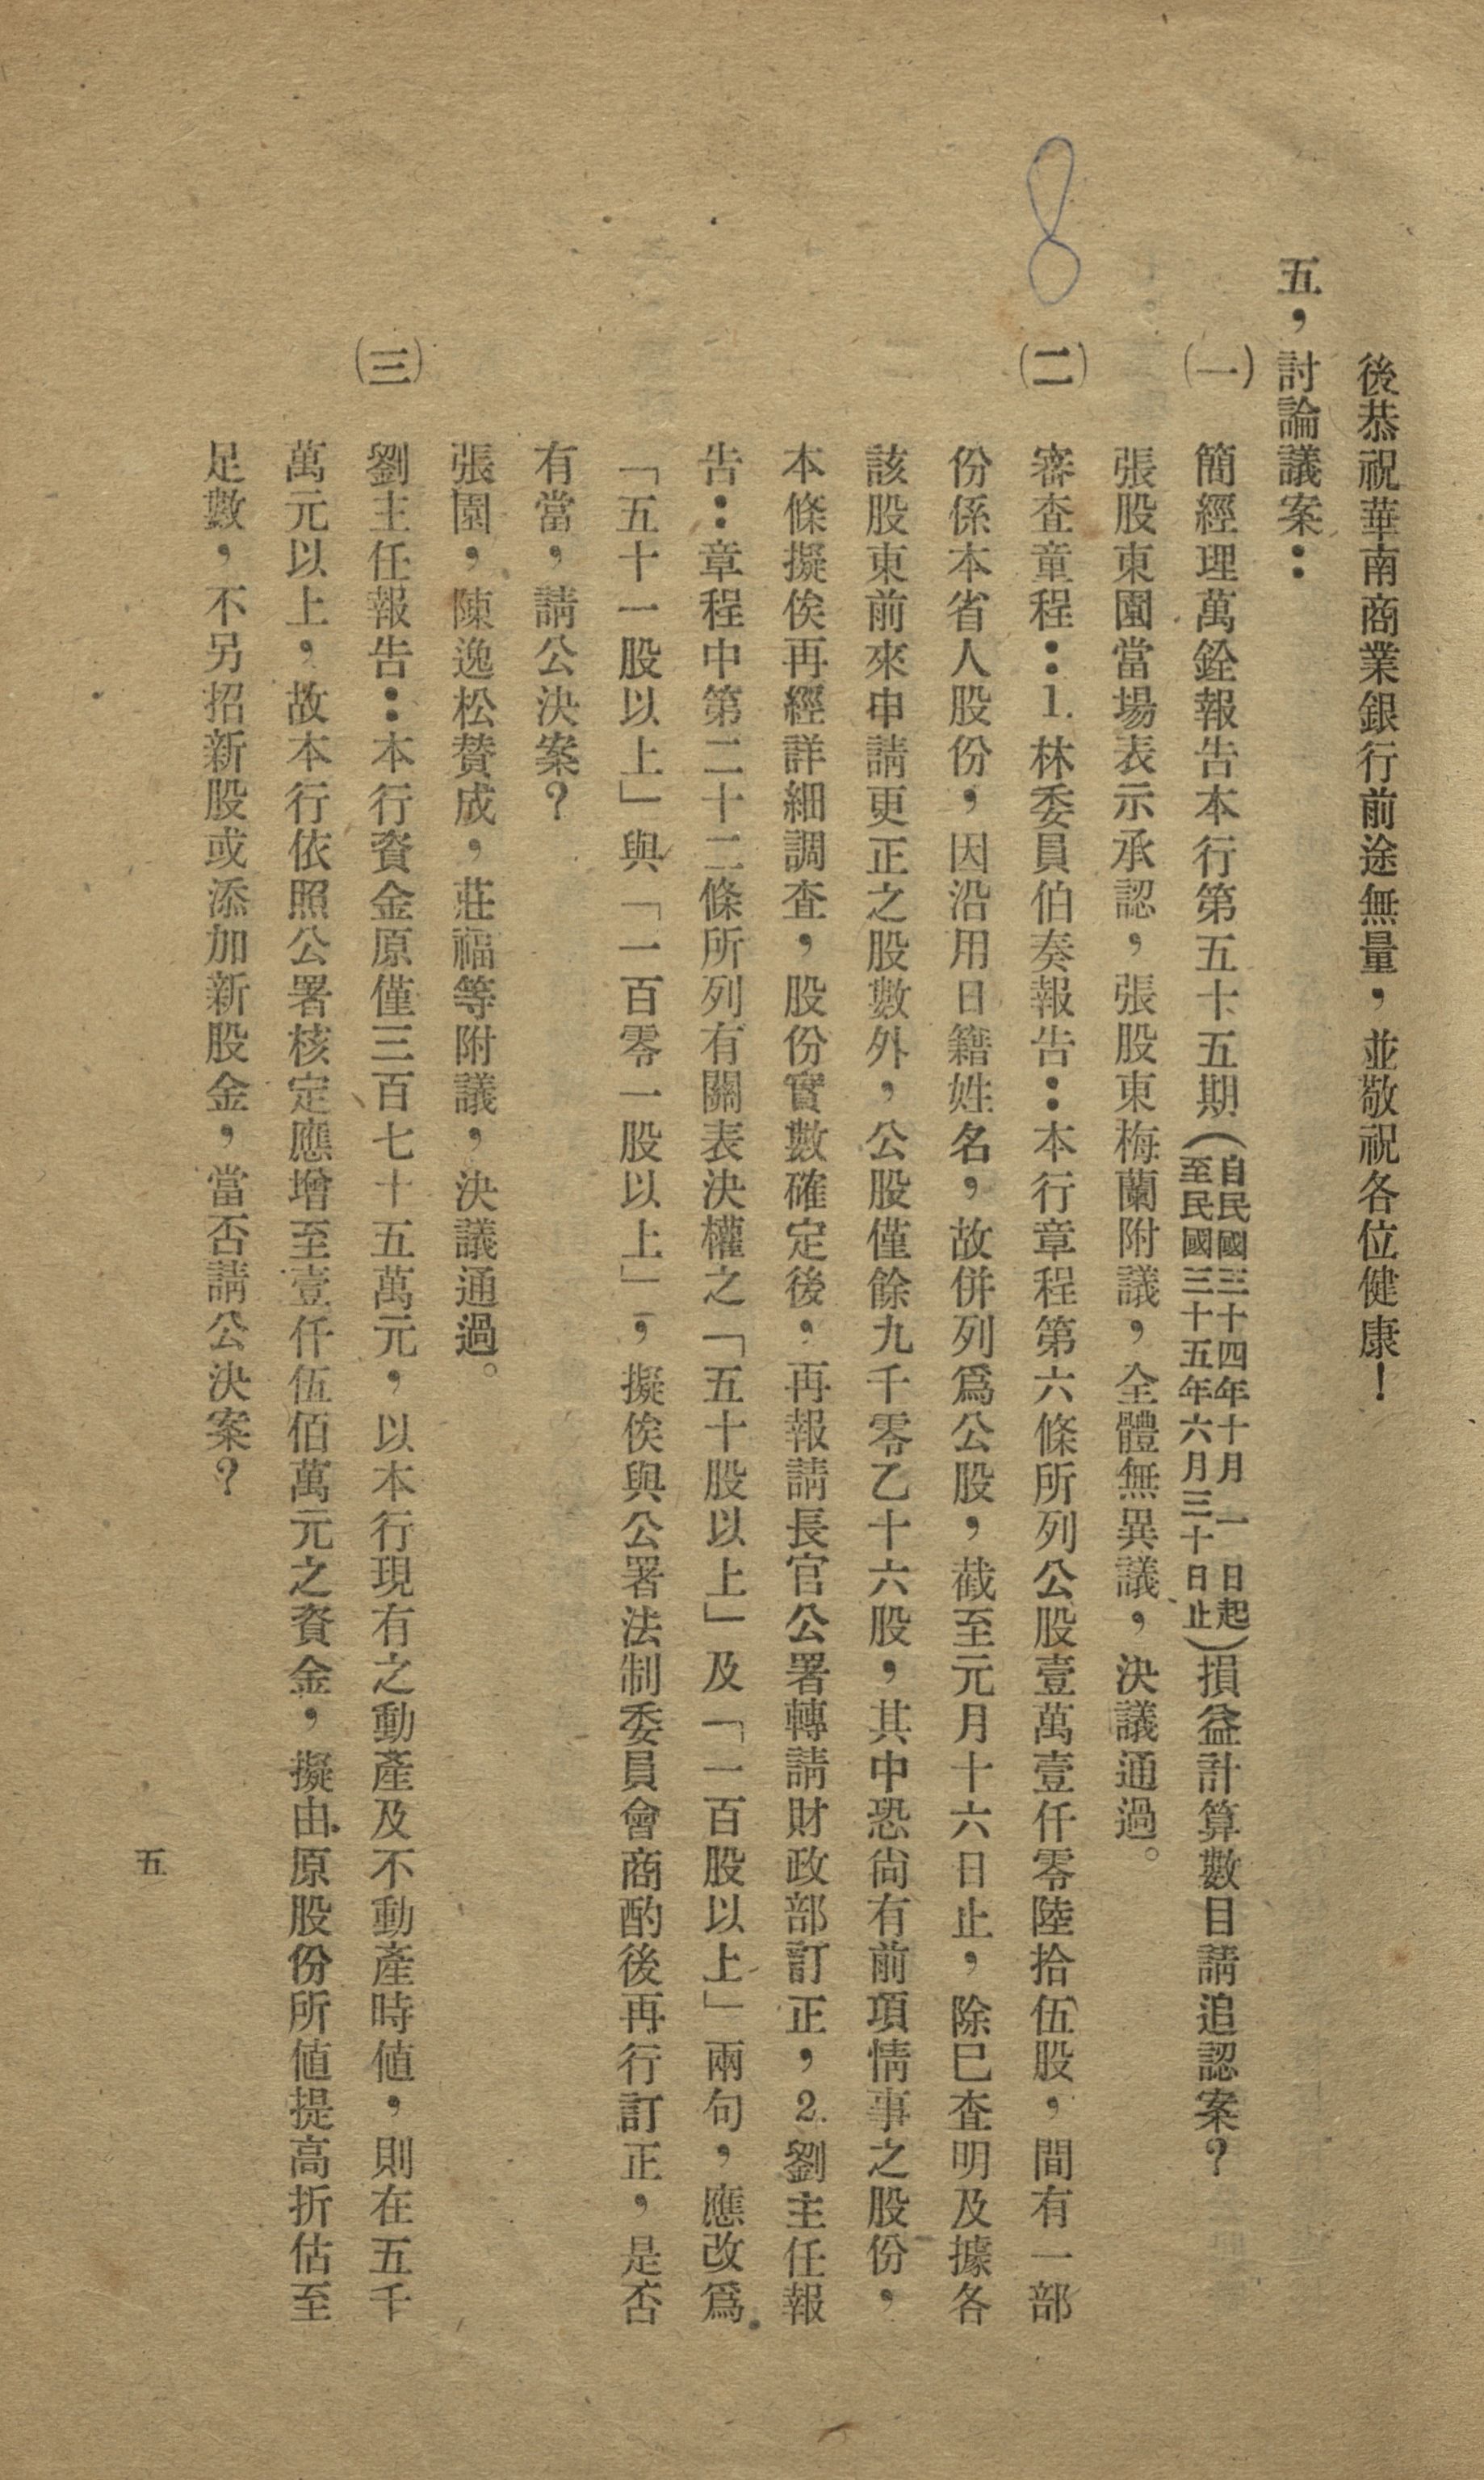 後恭祝華南商業銀行前途無量，並敬祝各位健康！
五，討論議案：
(一) 簡經理萬銓報告本行第五十五期(自民國三十四年十月一日起至民國三十五年六月三十日止)損益計算數目請追認案？
張股東園當場表示承認，張股東梅蘭附議，全體無異議，決議通過。
(二) 審查童程：1.林委員伯奏報告：本行章程第六條所列公股壹萬壹仟零陸拾伍股，間有一部
份係本省人股份，因沿用日籍姓名，故併列爲公股，截至元月十六日止，除巳查明及據各
該股東前來申請更正之股數外，公股僅餘九千零乙十六股，其中恐尙有前項情事之股份，
本條擬俟再經詳細調查，股份實數確定後，再報請長官公署轉請財政部訂正，2.劉主任報
告：章程中第二十二條所列有關表決權之「五十股以上」及「一百股以上」兩句，應改爲
「五十一股以上」與「一百零一股以上」，擬俟與公署法制委員會商酌後再行訂正，是否
有當，請公決案？
張園，陳逸松贊成，莊福等附議，決議通過。
(三) 劉主任報告：本行資金原僅三百七十五萬元，以本行現有之動產及不動產時値，則在五千
萬元以上，故本行依照公署核定應增至壹仟伍佰萬元之資金，擬由原股份所値提高折估至
足數，不另招新股或添加新股金，當否請公決案？
五
8